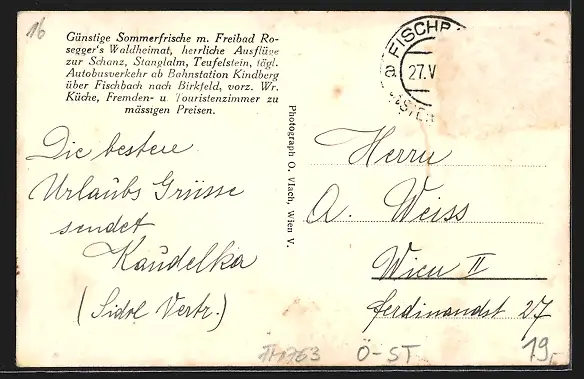 16
Günstige Sommerfrische m. Freibad Ro-
segger's Waldheimat, herrliche Ausflüge
zur Schanz, Stanglalm, Teufelstein, tägl.
Autobusverkehr ab Bahnstation Kindberg
über Fischbach nach Birkfeld, vorz. Wr.
Küche, Fremden- u. Touristenzimmer zu
mässigen Preisen.
Die bestere
Urlaubs Grüsse
sendet
Kaudelka
(Sidol Vertr.)
Photograph O. Vlach, Wien V.
a FISCHB
27.V
Herrn
A. Weiss
Wien II
Ferdinandst 27
Ö-ST
19